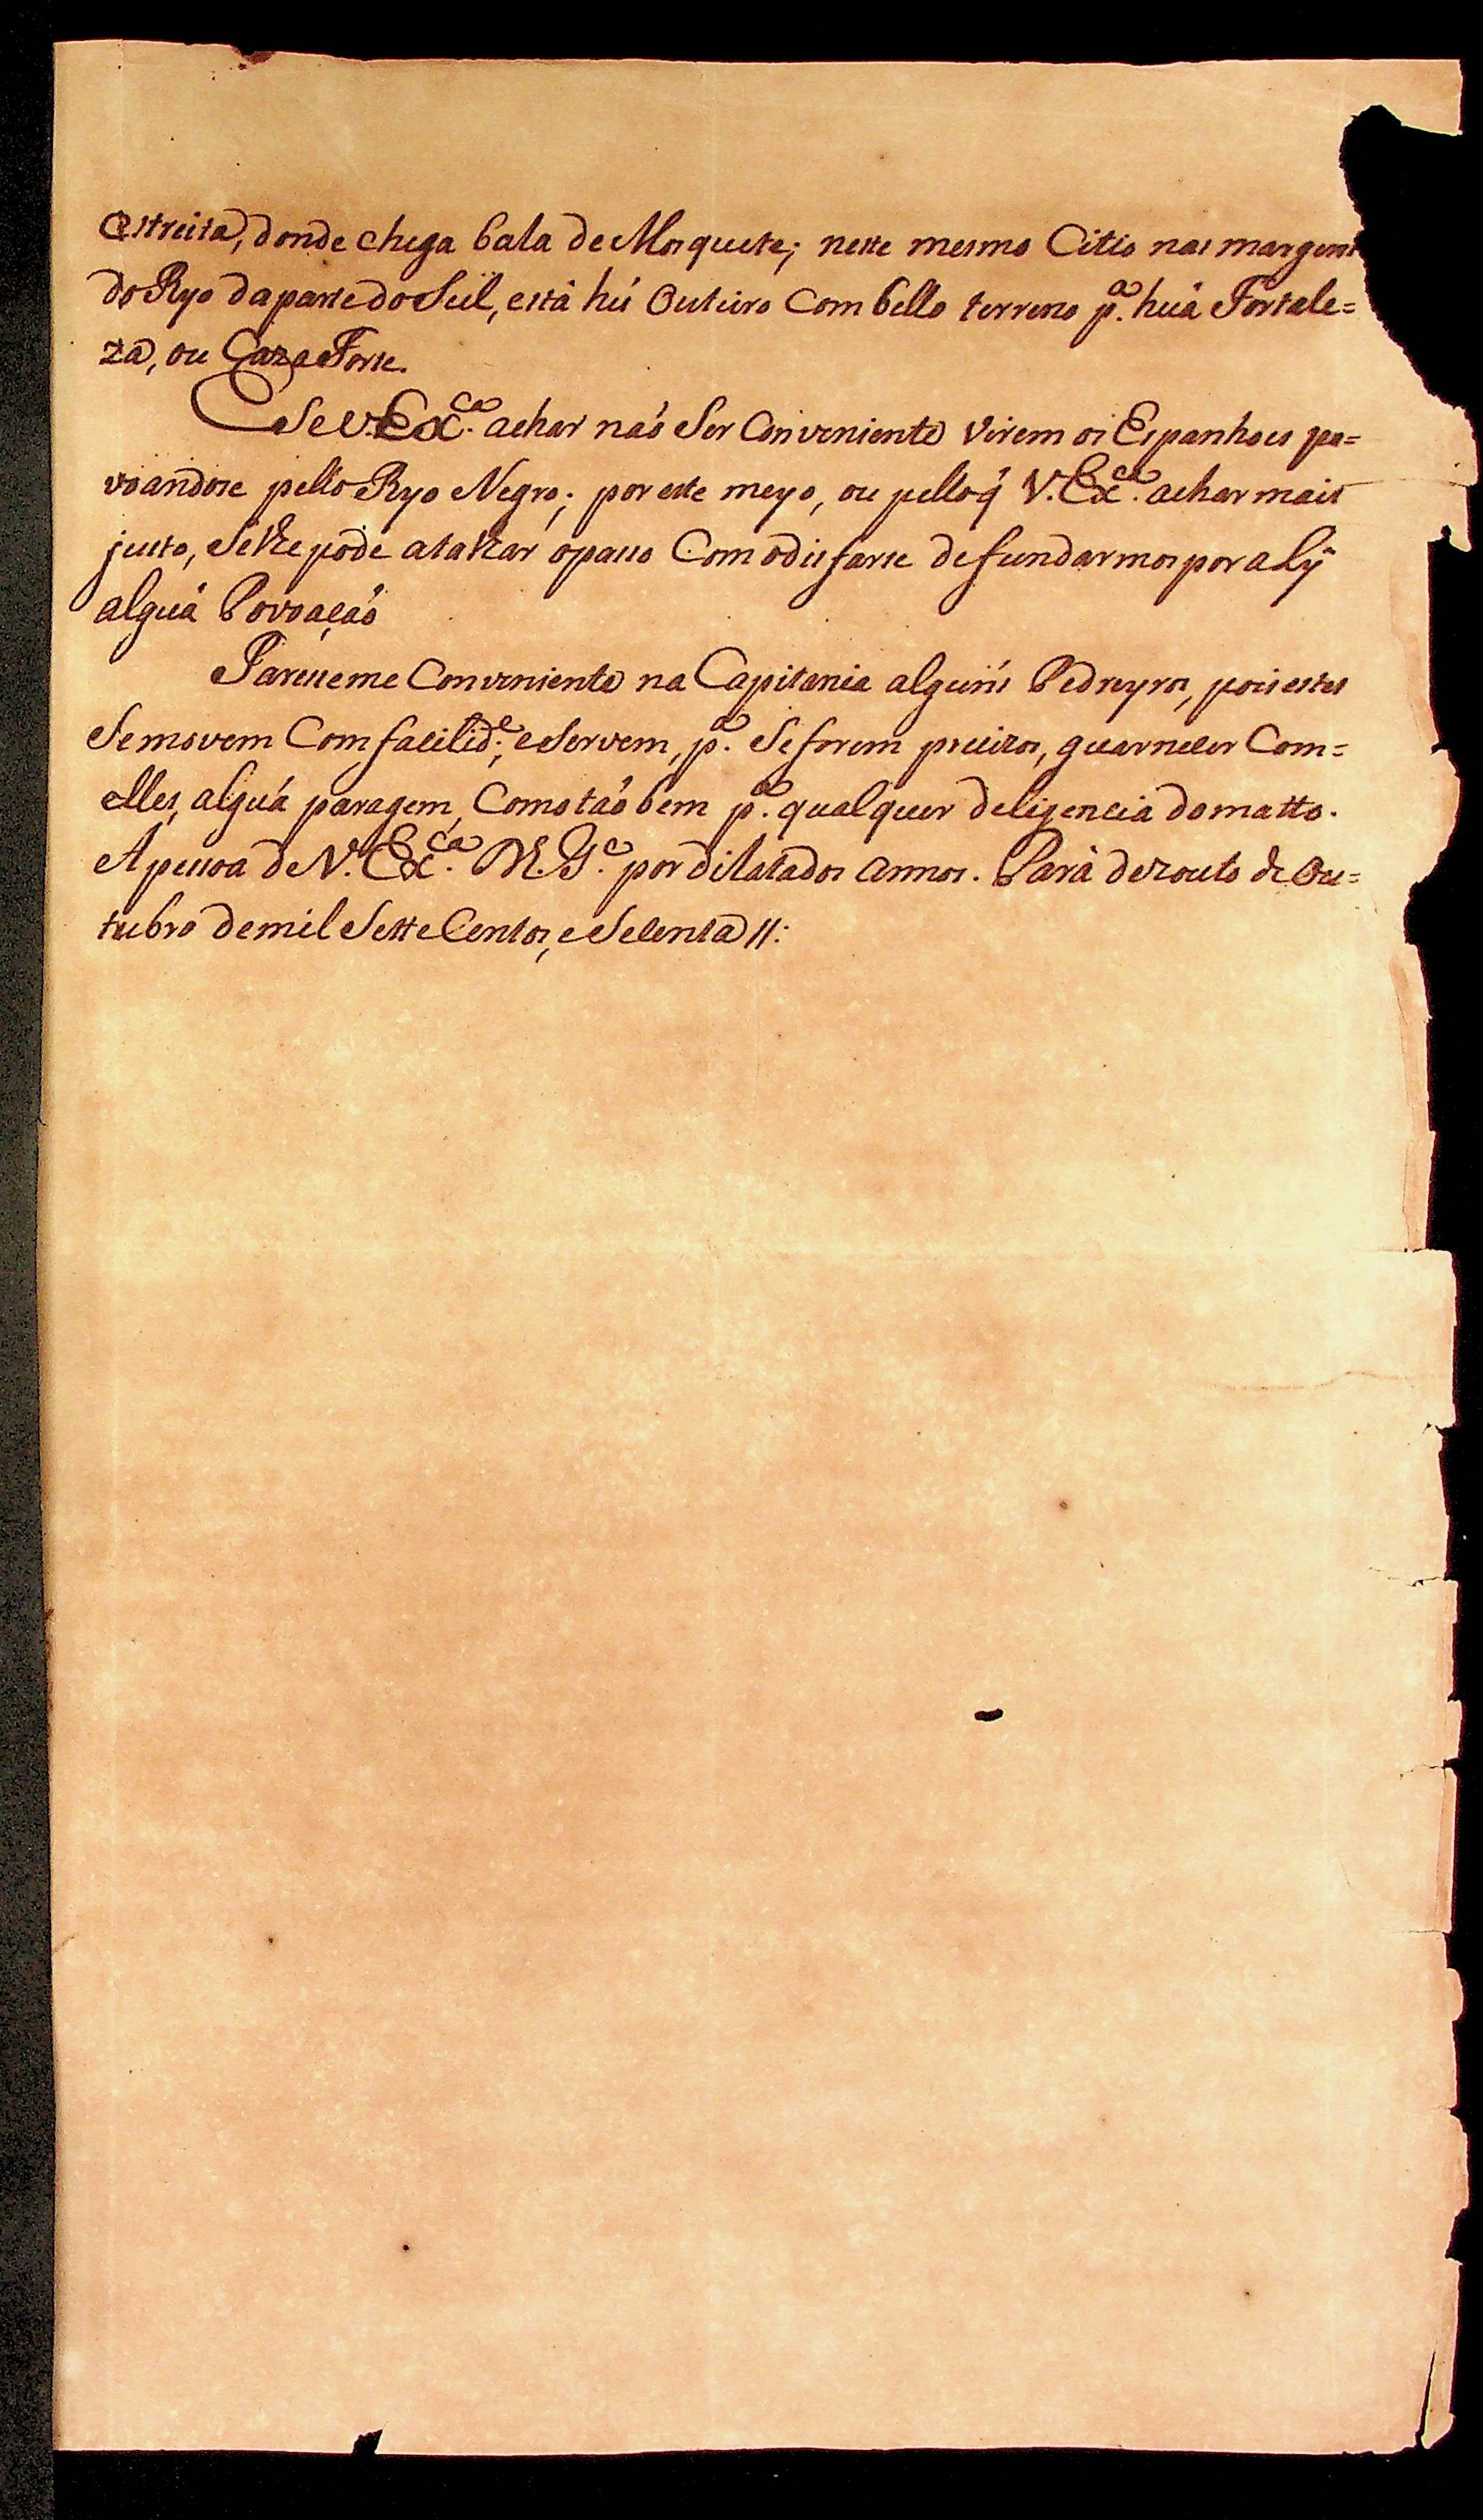 estreita, donde chega bala de Mosquete; neste mesmo Citio nas margens
do Ryo da parte do Sul, está hú Outeiro com bello terreno p.ª huá Fortale=
za, ou Caza Forte.
Se V. Ex.ca achar naó Ser Conveniente Virem os Espanhoes po=
voandose pello Ryo Negro; por este meyo, ou pello q́ V. Ex.ca achar mais
justo, Se lhe póde atalhar o passo Com o disfarse de fundarmos por alÿ
alguá Povoaçaó
Pareseme Conveniente na Capitania alguńs Pedreyros, pois estes
Se movem Com facilid.e; e Servem, p.ª Se forem precizos, guarnecer Com=
elles, alguá paragem, Como taó bem p.ª qualquer deligencia do matto.
A pessoa de V. Ex.ca G.e por dilatados annos. Pará dezouto de Ou=
tubro de mil Sette Centos, e Setenta //: